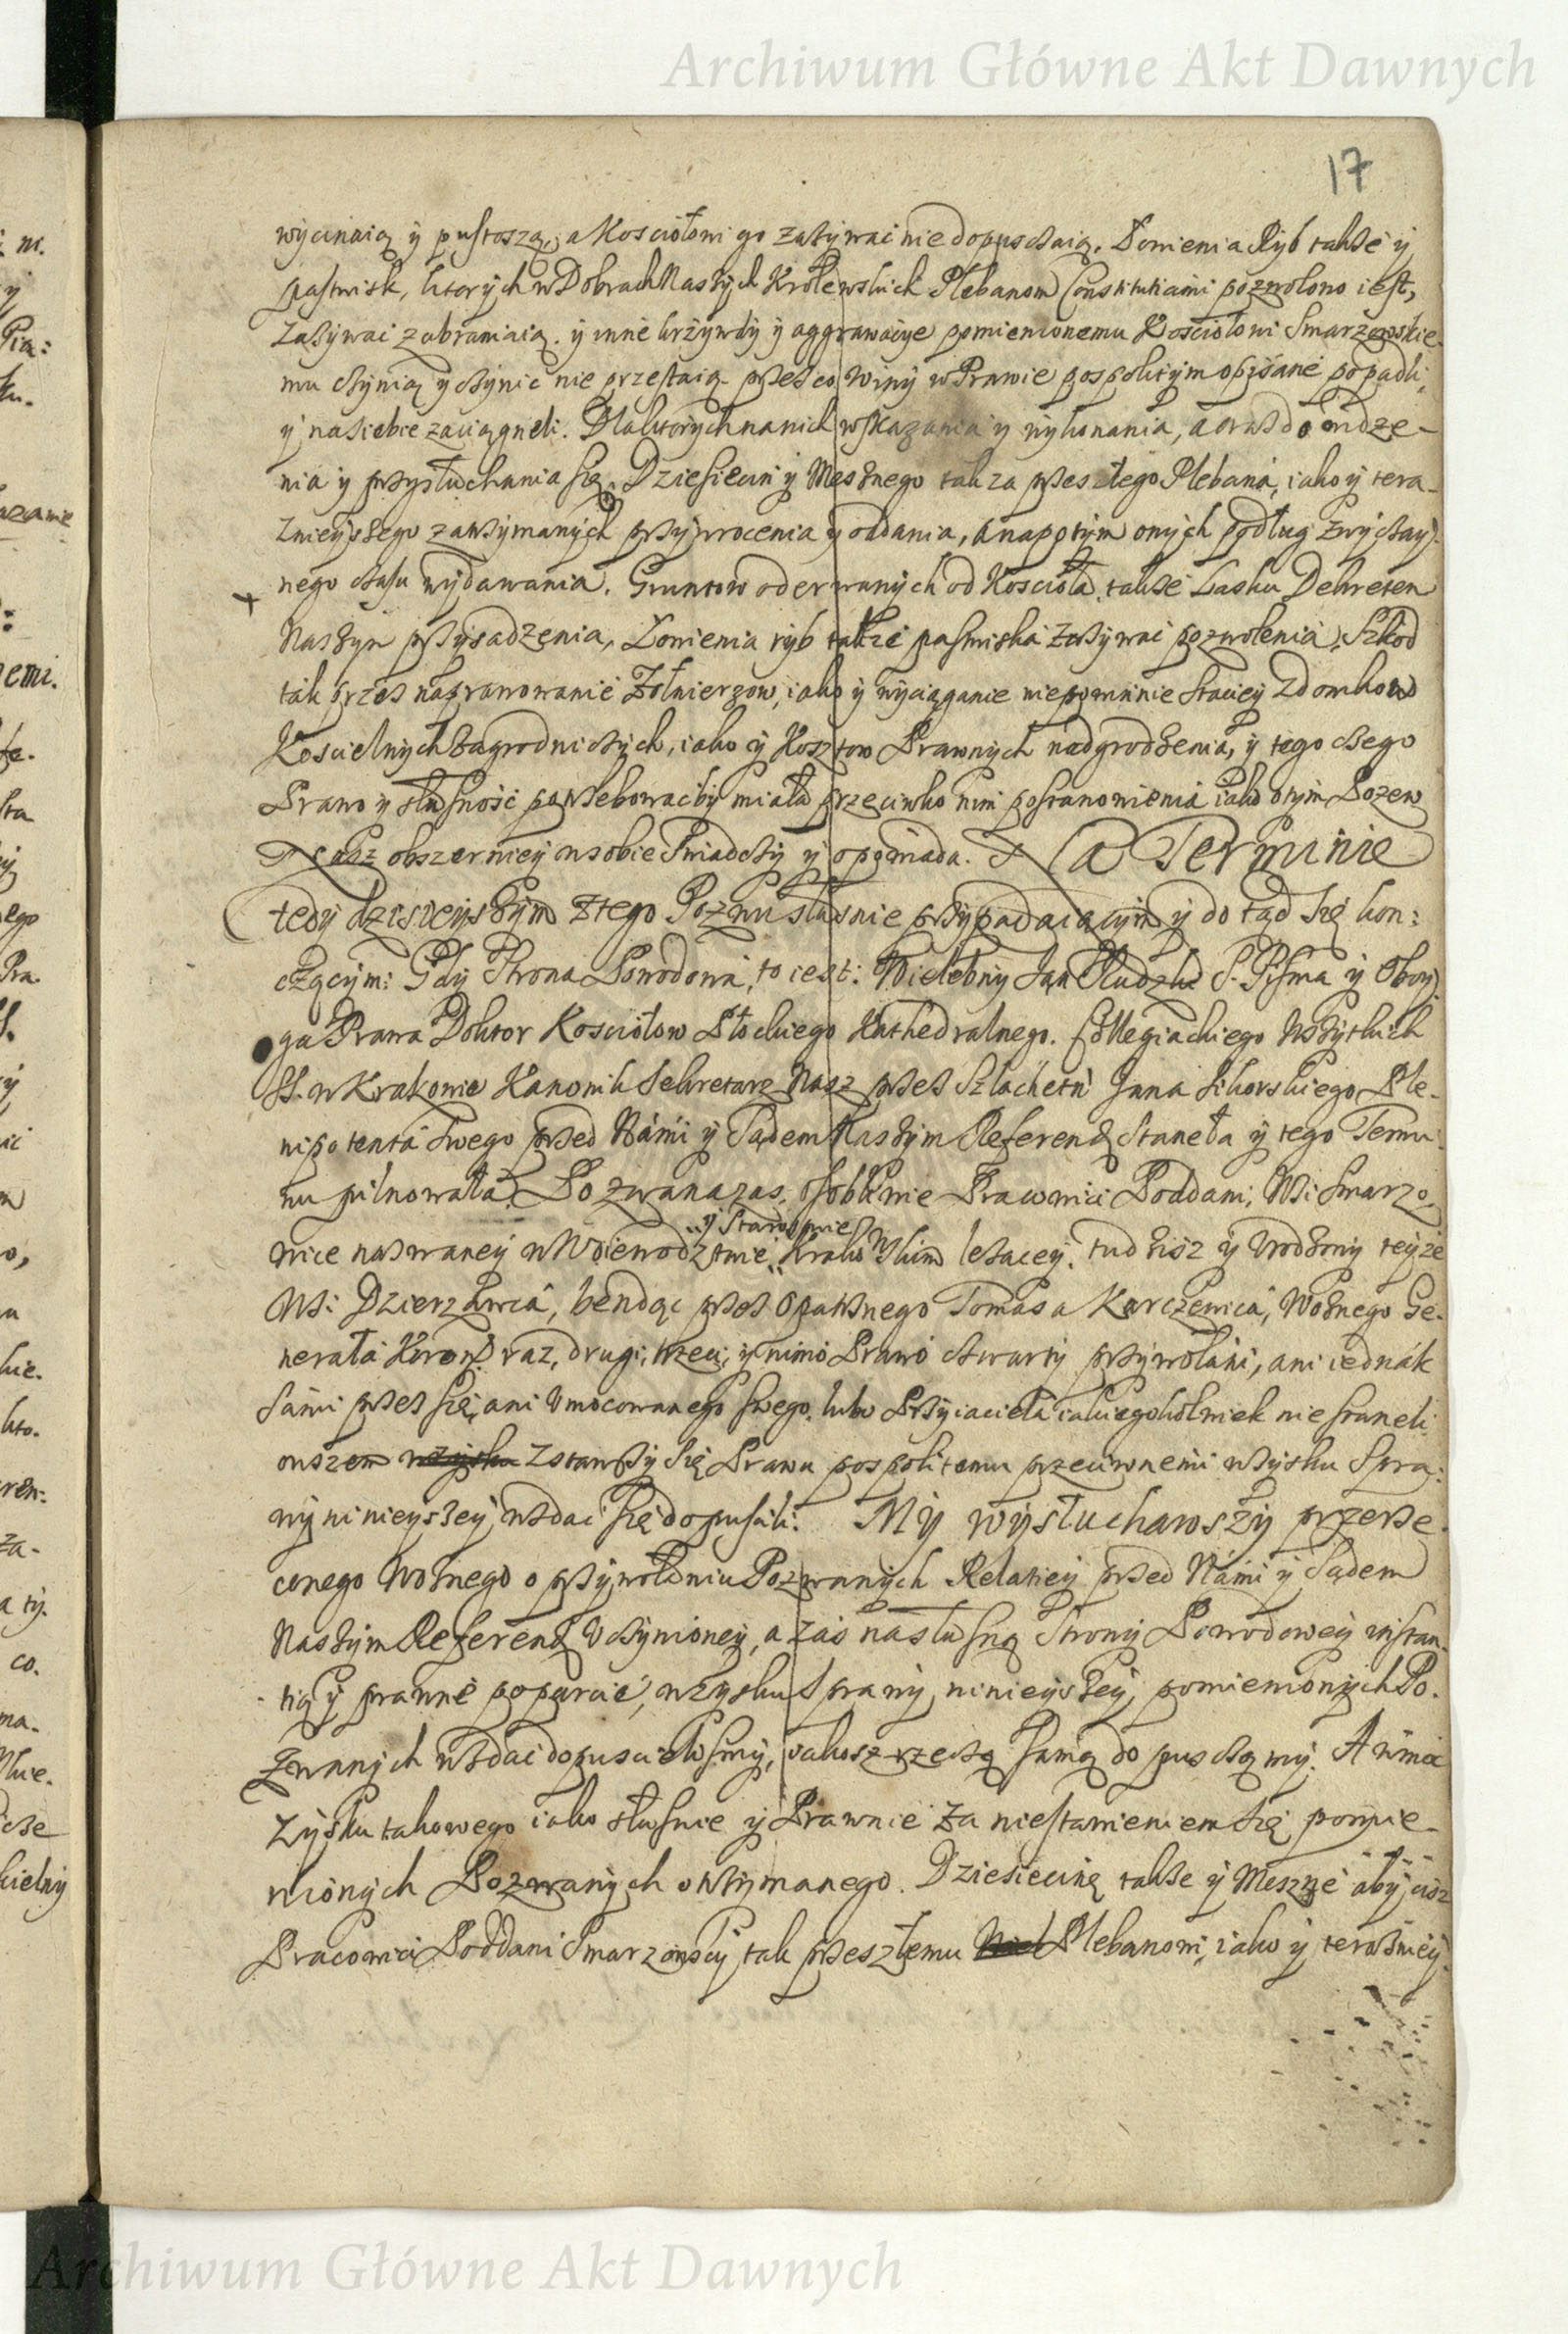 Archiwum Główne Akt Dawnych
17
wycinaią y pustoszą, a Kosciołowi go zażywac nie dopusczaią. Łowienia Ryb także ÿ
pastwisk, ktorych w Dobrach Naszych Krolewskich Plebanom Constitutiami pozwolono iest,
Zażywac zabraniaią. y inne krzywdy ÿ aggrawacÿe pomienionemu Kosciołowi Smarzowskie-
mu czÿnią ÿ czÿnic nie przestaią. przez co winÿ w Prawie pospolitÿm opisane popadli,
ÿ na siebie zaciągneli. Dla ktorych na nich wskazania ÿ wÿkonania, a oraz do widze-
nia ÿ przysłuchania się. Dziesieciny Mesznego tak za przeszłego Plebana, iako ÿ tera-
znieÿszego zatrzÿmanÿch przÿwrocenia ÿ oddania, a napotÿm onÿch podług zwÿczaÿ-
nego czasu wÿdawania. Gruntow oderwanÿch od Koscioła, także Lasku Dekretem
Naszÿm przÿsadzenia, Łowienia ryb także pastwiska zażÿwac pozwolenia, Szkod
tak przez naprawowanie Żołnierzow, iako ÿ wÿciąganie niepowinnie Staciey z domkow
Koscielnych Zagrodniczÿch, iako ÿ Kosztow Prawnÿch nadgrodzenia, ÿ tego czego
Prawo ÿ słusność potrzebowacby miała przeciwko nim postanowienia iako o tÿm Pozew
Nasz obszerniey w sobie swiadczÿ ÿ opowiada. Na Terminie
tedÿ dzisieÿszÿm z tego Pozwu słusnie przypadaiącÿm ÿ do tąd się kon:
czącÿm: Gdÿ Strona Powodowa, to iest: Wielebnÿ Jan Rudzki S. Pisma ÿ Oboÿ-
ga Prawa Doktor Kosciołow Płockiego Kathedralnego. Collegiackiego Wszÿstkich
SS. w Krakowie Kanonik Sekretarz Nasz przez Szlachetn. Jana Sikorskiego Ple-
nipotenta swego przed Nami ÿ Sądem Naszÿm Referend. staneła ÿ tego Termi-
nu pilnowała. Pozwana zas, osobliwie Pracowici Poddani, Wsi Smarzo-
wice nazwaneÿ w Woiewodztwie ÿ Starostwie Krakowskim leżaceÿ. tudzisz ÿ Urodzonÿ teÿże
Wsi Dzierzawca, bendąc przez Opatrznego Tomasa Karczewica, Woznego Ge-
nerała Koron. raz, drugi, trzeci, ÿ mimo Prawo czwartÿ przÿwołani, ani iednak
sami przez się, ani Umocowanego swego, lubo Przÿiaciela iakiegokolwiek nie staneli
owszem zstawszÿ się Prawu pospolitemu przeciwnemi w zÿsku Spra:
wÿ ninieÿszeÿ, wzdac się dopuscili. Mÿ wÿsłuchawszÿ przerze-
czonego Woznego o przÿwołaniu Pozwanÿch Relatieÿ przed Nami ÿ Sądem
Naszÿm Referend. Uczÿnioneÿ, a zas na słusną Stronÿ Powodoweÿ instan-
tią ÿ prawne poparcie, w zÿsku Sprawÿ ninieÿszeÿ, pomienionÿch Po-
zwanÿch wzdac dopuscilismÿ, iakosz rzeczą samą dopusczamÿ. A w moc
Zÿsku takowego iako słusnie ÿ Prawnie za niestawieniem się pomie-
nionÿch Pozwanÿch otrzÿmanego. Dziesiecinę także ÿ Meszne abÿ ciż
Pracowici Poddani Smarzowscÿ tak przeszłemu Plebanowi, iako ÿ terazniey-
Archiwum Główne Akt Dawnych